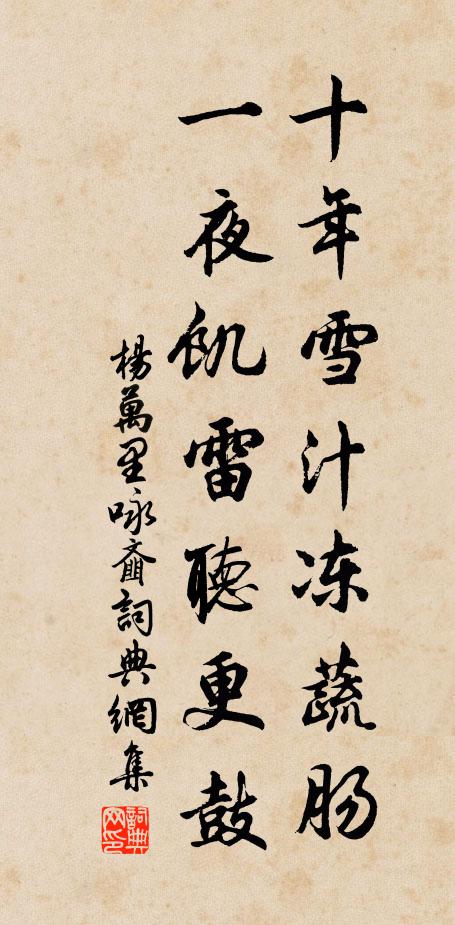 十年雪汁冻蔬肠
一夜飢雷聽更鼓
楊萬里咏齑詞典網集
詞典网印